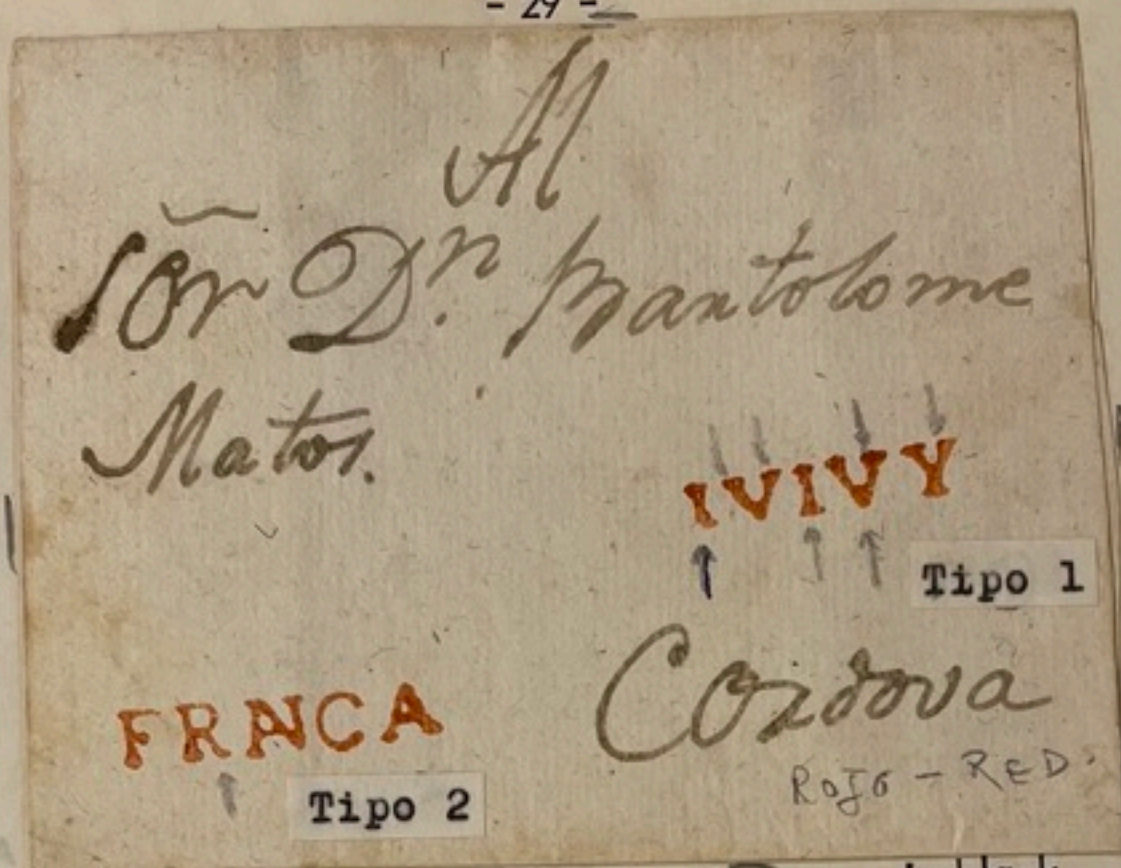 - 29 -
Al
Sõr Dn. Bartolome
Matos.
IVIVY
Tipo 1
Cordova
FRANCA
Tipo 2
ROJO - RED.